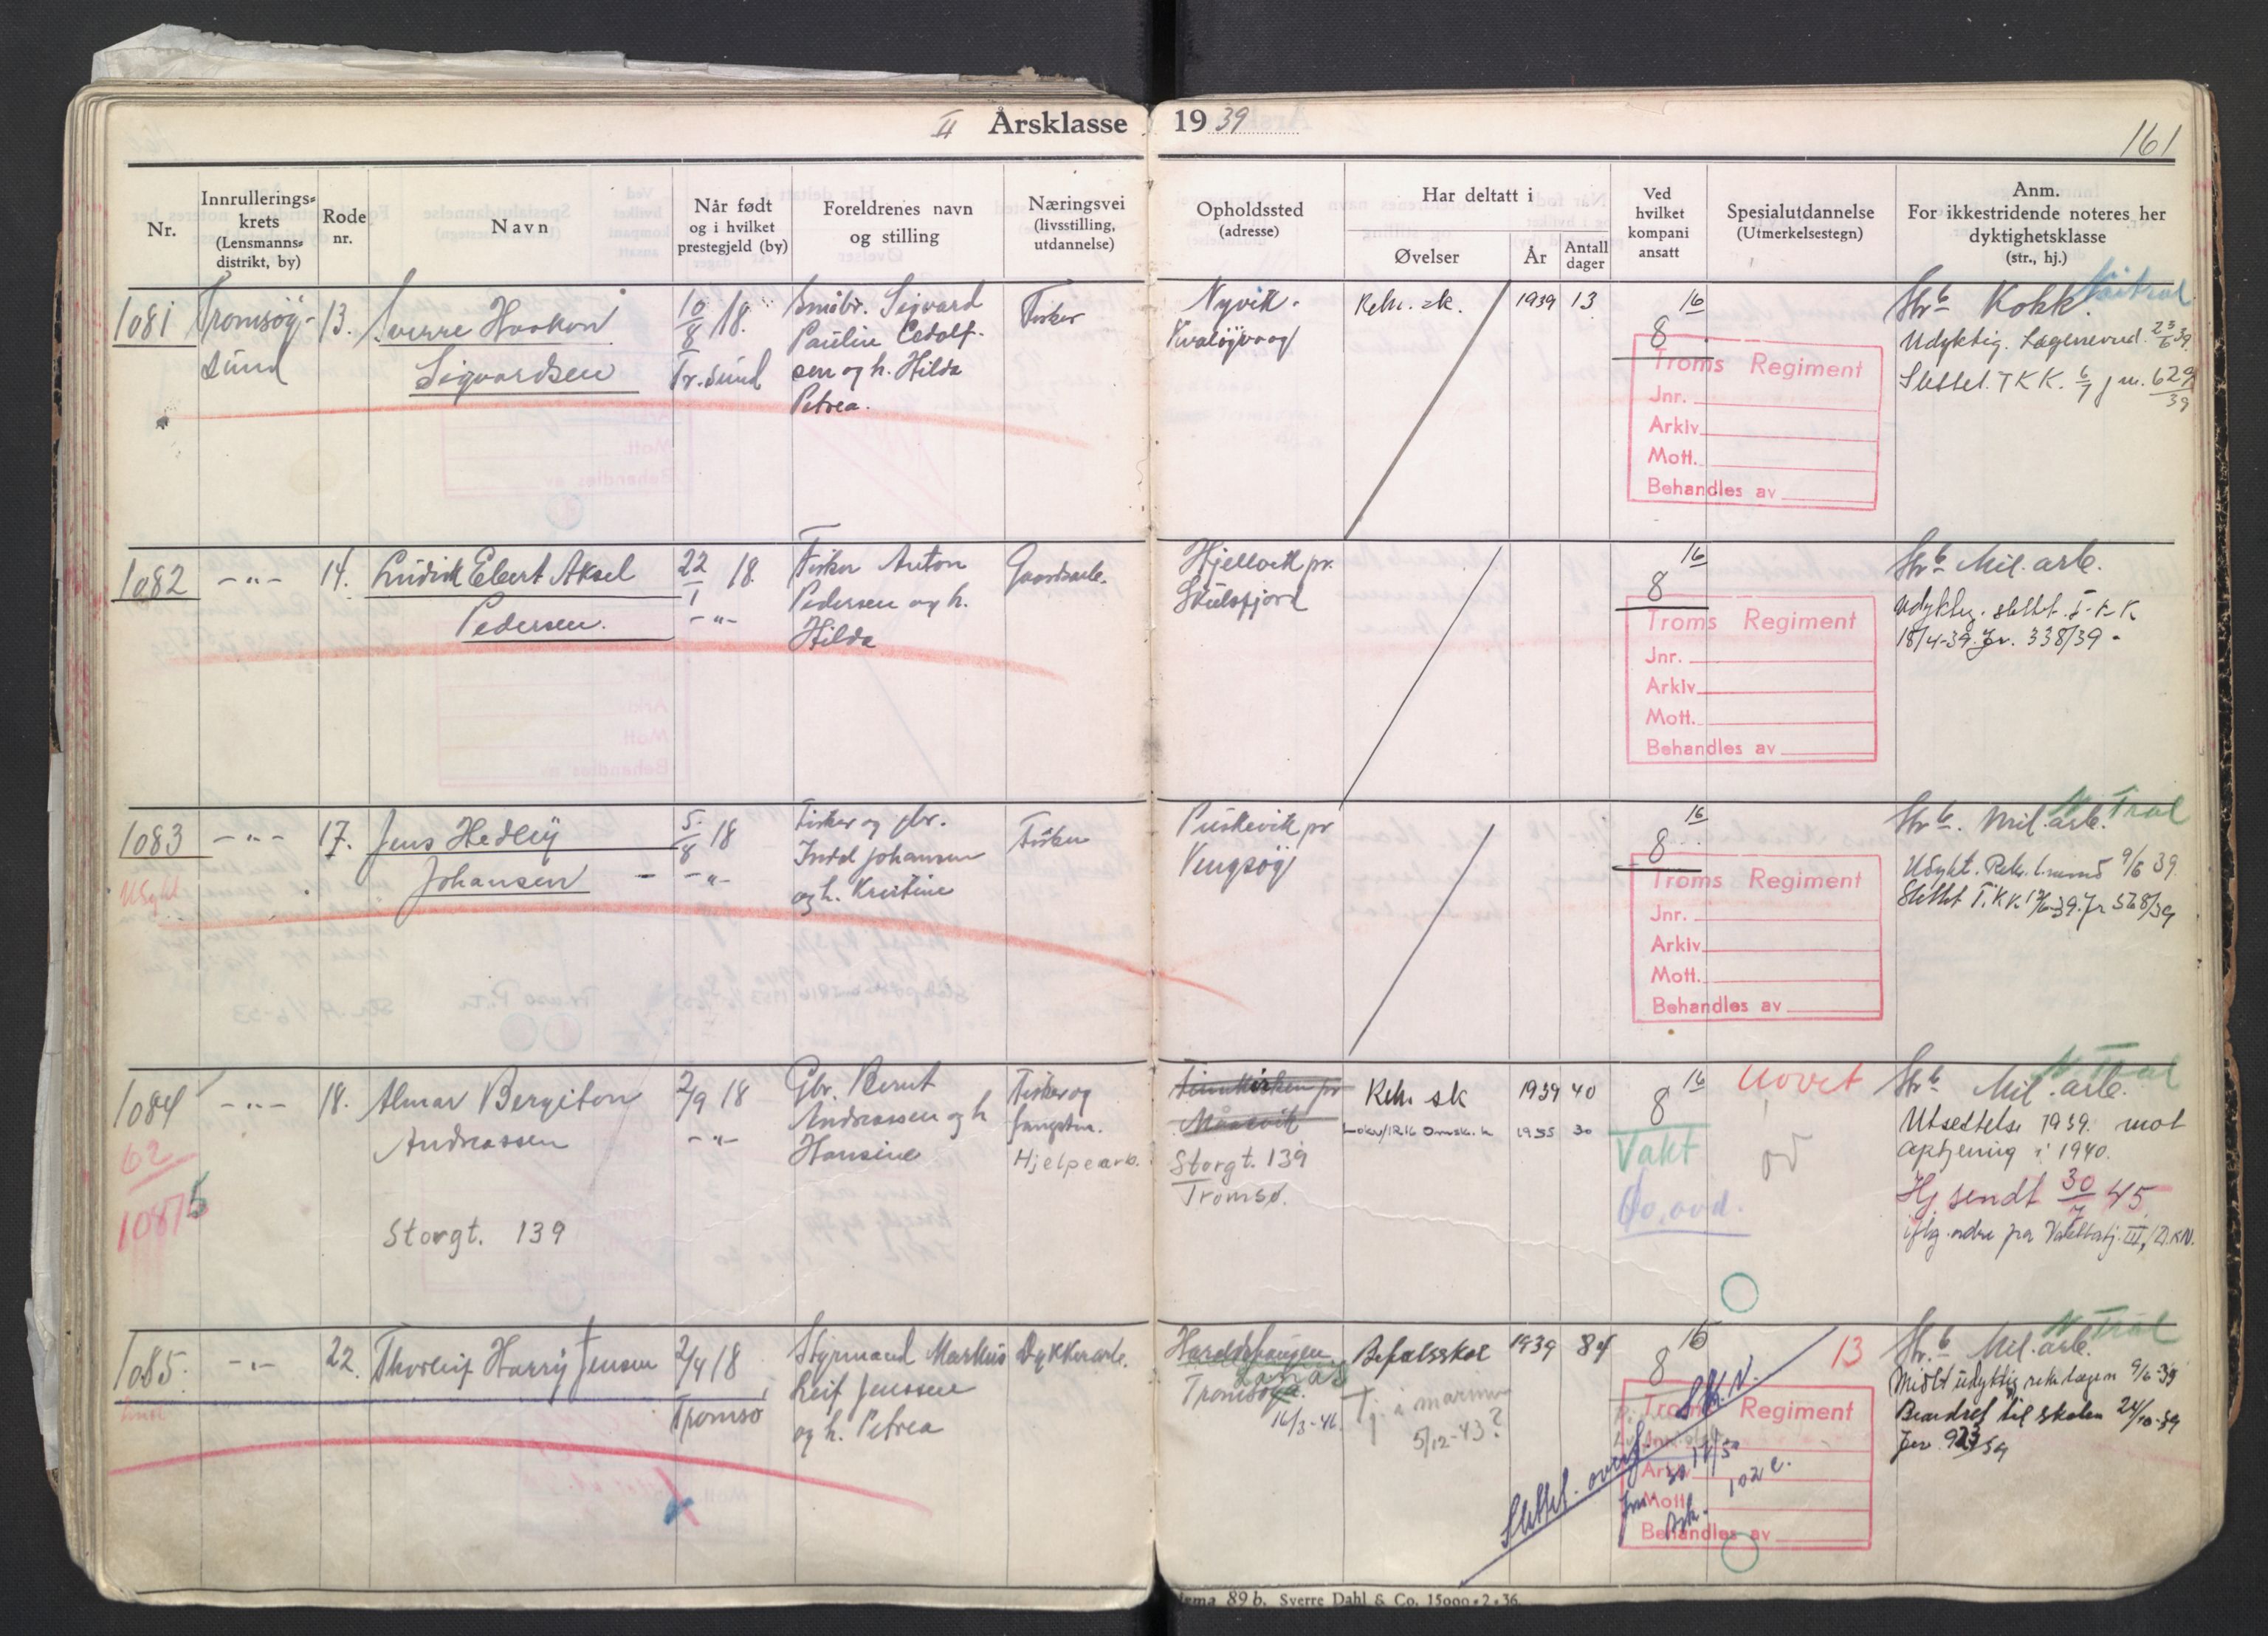 II Årsklasse 1939
161
Nr.
Innrullerings-
krets
(Lensmanns-
distrikt, by)
Rode
nr.
Navn
Når født
og i hvilket
prestegjeld (by)
Foreldrenes navn
og stilling
Næringsvei
(livsstilling,
utdannelse)
Opholdssted
(adresse)
Har deltatt i
Øvelser
År
Antall
dager
Ved
hvilket
kompani
ansatt
Spesialutdannelse
(Utmerkelsestegn)
Anm.
For ikkestridende noteres her
dyktighetsklasse
(str., hj.)
1081
Tromsöy-
sund
13.
Sverre Haakon
Sigvardsen
10/8 18.
Tr.sund
Småbr. Sigvard
Paulin Edolf-
sen og h. Hilda
Petrea.
Fisker
Nyvik.
Kvalöyvaag
Rekr. sk.
1939
13
16
8
Troms Regiment
Jnr.
Arkiv
Mott.
Behandles av
Str. Kokk.
Udyktig. Lægenevnd. 23/6 39.
Slettet. T K K. 6/7 j nr. 629/39
1082
-"-
14.
Ludvik Ebert Aksel
Pedersen.
22/1 18.
-"-
Fisker Anton
Pedersen og h.
Hilda
Gaardsarb.
Hjellvik pr.
Skulsfjord
16
8
Troms Regiment
Jnr.
Arkiv
Mott.
Behandles av
Str. Mil. arb.
Udyktig. slettet. T. K. K
18/4-39. Jr. 338/39
1083
Udykt
-"-
17.
Jens Hedley
Johansen
5/8 18
-"-
Fisker og gbr.
Johansen
og h. Kristine
Fisker
Vengsøy
16
8
Troms Regiment
Jnr.
Arkiv
Mott.
Behandles av
Str. Mil. arb.
N Tral
Udykt. Rekr. l.nevnd 9/6 39.
Slettet T.K.K 12/6-39. Jr 568/39
1084
62
10875
-"-
18.
Almar Bergiton
Andreassen
Storgt. 139
2/9 18
-"-
Gbr. Bernt
Andreassen og h
Hansine
Fisker og
fangstm.
Hjelpearb.
Finnkirken pr
Måsvik
Storgt. 139
Tromsø.
Rekr sk
1939
40
1955
30
16
8
Vakt
Uovet
Str. Mil. arb.
N Tral
Utsettelse 1939. mot
aptjening i 1940.
Hj. sendt 30/7 45.
iflg. ordre fra Vaktbatj. III, D.K.N.
1085.
-"-
22.
Thorleif Harry Jensen
2/4 18
Tromsø
Styrmand Markus
Leif Jenssen
og h. Petrea
Dykkerarb.
Tromsøya.
16/3-46.
Befalsskol
1939
84
Tj. i marinen
5/12-43?
16
8
13
Slettet. overf. SK.N.
Troms Regiment
Jnr.
Arkiv
Mott.
Behandles av
Str. Mil. arb.
N Tral
Midlt udyktig rekr lægen 9/6-39
Beordret til skolen 24/10-39
89 b. Sverre Dahl & Co. 15000•2•36.